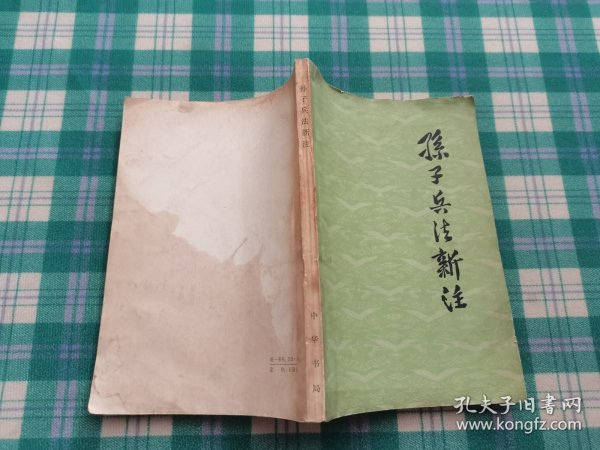 孫子兵法新注
孙子兵法新注
中华书局
孔夫子旧書网
www.kongfz.com